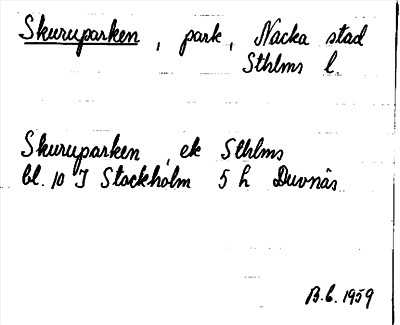 Skuruparken, park, Nacka stad
Sthlms l.
Skuruparken, ek Sthlms
bl. 10 I Stockholm 5 h Duvnäs
B.C. 1959